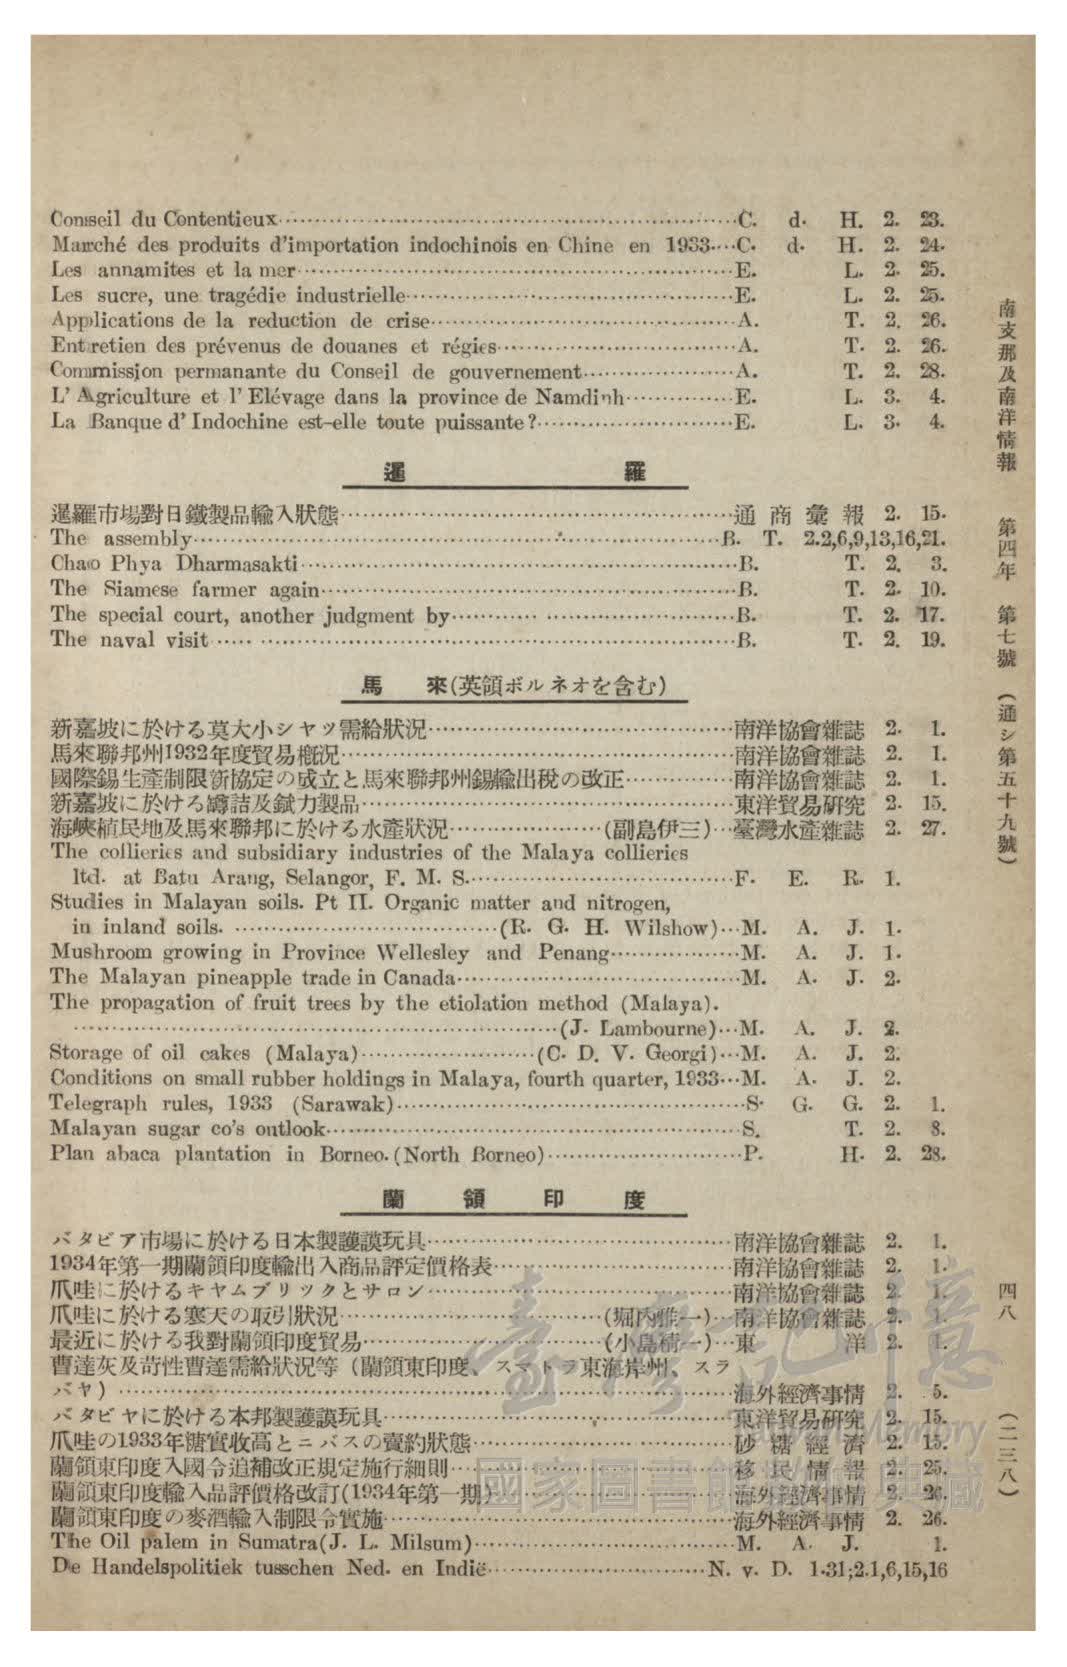 Conseil du Contentieux……C. d. H. 2. 23.
Marché des produits d'importation indochinois en Chine en 1933…C. d. H. 2. 24.
Les annamites et la mer……E. L. 2. 25.
Les sucre, une tragédie industrielle……E. L. 2. 25.
Applications de la reduction de crise……A. T. 2. 26.
Entretien des prévenus de douanes et régies……A. T. 2. 26.
Commission permanante du Conseil de gouvernement……A. T. 2. 28.
L' Agriculture et l' Elévage dans la province de Namdinh……E. L. 3. 4.
La Banque d' Indochine est-elle toute puissante?……E. L. 3. 4.
暹羅
暹羅市場對日鐵製品輸入狀態……通商彙報 2. 15.
The assembly……B. T. 2.2,6,9,13,16,21.
Chao Phya Dharmasakti……B. T. 2. 3.
The Siamese farmer again……B. T. 2. 10.
The special court, another judgment by……B. T. 2. 17.
The naval visit……B. T. 2. 19.
馬來(英領ボルネオを含む)
新嘉坡に於ける莫大小シヤツ需給狀況……南洋協會雜誌 2. 1.
馬來聯邦州1932年度貿易槪況……南洋協會雜誌 2. 1.
國際錫生產制限新協定の成立と馬來聯邦州錫輸出稅の改正……南洋協會雜誌 2. 1.
新嘉坡に於ける罐詰及鉞力製品……東洋貿易硏究 2. 15.
海峽植民地及馬來聯邦に於ける水產狀況……(副島伊三)…臺灣水產雜誌 2. 27.
The collieries and subsidiary industries of the Malaya collieries
ltd. at Batu Arang, Selangor, F. M. S.……F. E. R. 1.
Studies in Malayan soils. Pt II. Organic matter and nitrogen,
in inland soils. ……(R. G. H. Wilshow)…M. A. J. 1.
Mushroom growing in Province Wellesley and Penang……M. A. J. 1.
The Malayan pineapple trade in Canada……M. A. J. 2.
The propagation of fruit trees by the etiolation method (Malaya).
……(J. Lambourne)…M. A. J. 2.
Storage of oil cakes (Malaya)……(C. D. V. Georgi)…M. A. J. 2.
Conditions on small rubber holdings in Malaya, fourth quarter, 1933…M. A. J. 2.
Telegraph rules, 1933 (Sarawak)……S. G. G. 2. 1.
Malayan sugar co's outlook……S. T. 2. 8.
Plan abaca plantation in Borneo.(North Borneo)……P. H. 2. 28.
蘭領印度
バタビア市場に於ける日本製護謨玩具……南洋協會雜誌 2. 1.
1934年第一期蘭領印度輸出入商品評定價格表……南洋協會雜誌 2. 1.
爪哇に於けるキヤムブリツクとサロン……南洋協會雜誌 2. 1.
爪哇に於ける寒天の取引狀況……(堀內惟一)…南洋協會雜誌 2. 1.
最近に於ける我對蘭領印度貿易……(小島精一)…東洋 2. 1.
曹達灰及苛性曹達需給狀況等(蘭領東印度、スマトラ東海岸州、スラ
バヤ)……海外經濟事情 2. 5.
バタビヤに於ける本邦製護謨玩具……東洋貿易硏究 2. 15.
爪哇の1933年糖實收高とニバスの賣約狀態……砂糖經濟 2. 15.
蘭領東印度入國令追補改正規定施行細則……移民情報 2. 25.
蘭領東印度輸入品評價格改訂(1934年第一期)……海外經濟事情 2. 26.
蘭領東印度の麥酒輸入制限令實施……海外經濟事情 2. 26.
The Oil palem in Sumatra(J. L. Milsum)……M. A. J. 1.
De Handelspolitiek tusschen Ned. en Indië……N. v. D. 1.31;2.1,6,15,16
南支那及南洋情報 第四年 第七號 (通シ第五十九號)
四八 (二三八)
臺灣記憶
Taiwan Memory
國家圖書館 典藏